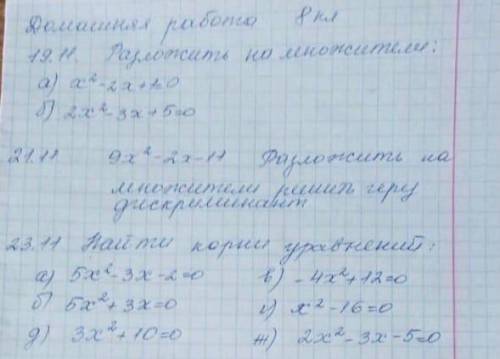 Домашняя работа 8 кл
19.11. Разложить на множители:
а) x²-2x+1=0
б) 2x²-3x+5=0
21.11 9x²-2x-11 Разложить на
множители решить через
дискриминант
23.11 Найти корни уравнений:
а) 5x²-3x-2=0 в) -4x²+12=0
б) 5x²+3x=0 г) x²-16=0
д) 3x²+10=0 ж) 2x²-3x-5=0